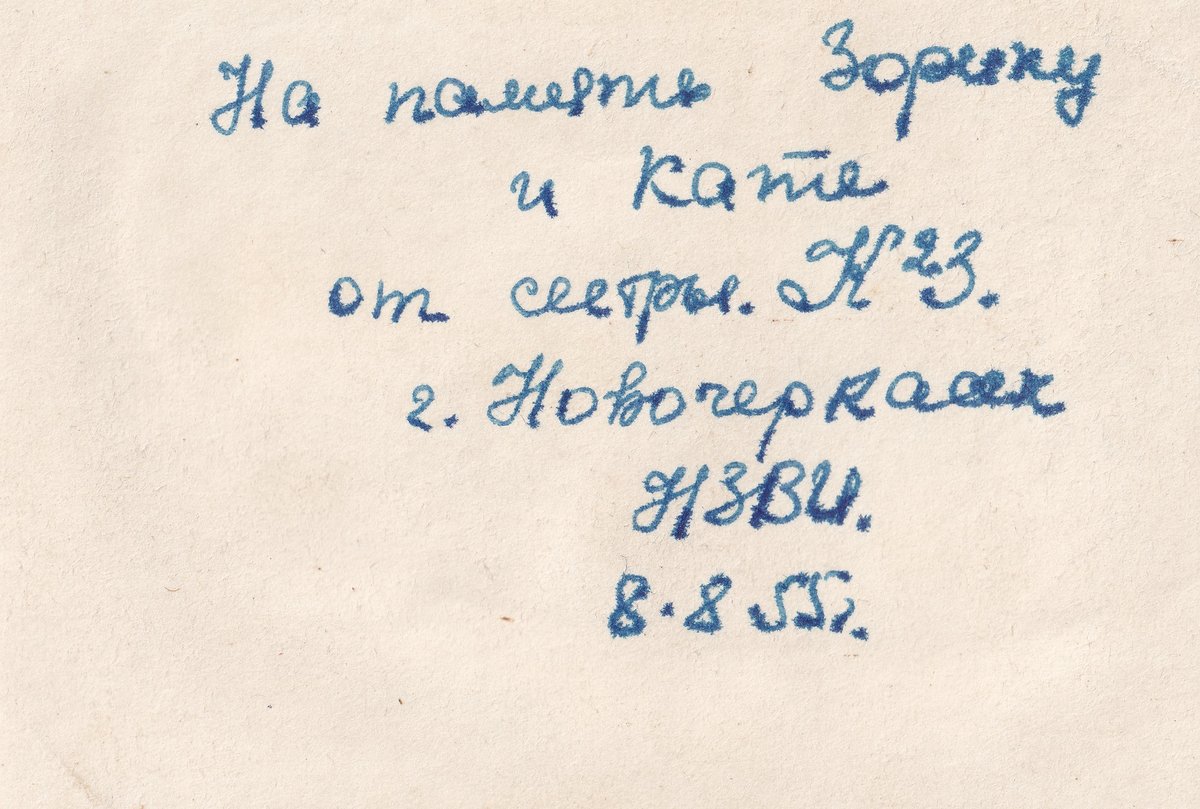 На память Зорику
и Кате
от сестры.
г. Новочеркасск
НЗВИ.
8.8 55г.